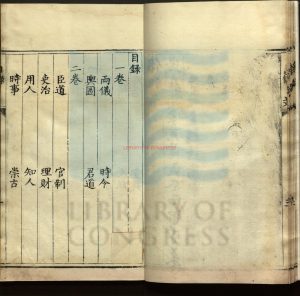 目錄
一卷
兩儀 時令
輿圖 君道
二卷
臣道 官制
吏治 理財
用人 知人
時事 崇古
LIBRARY OF
CONGRESS